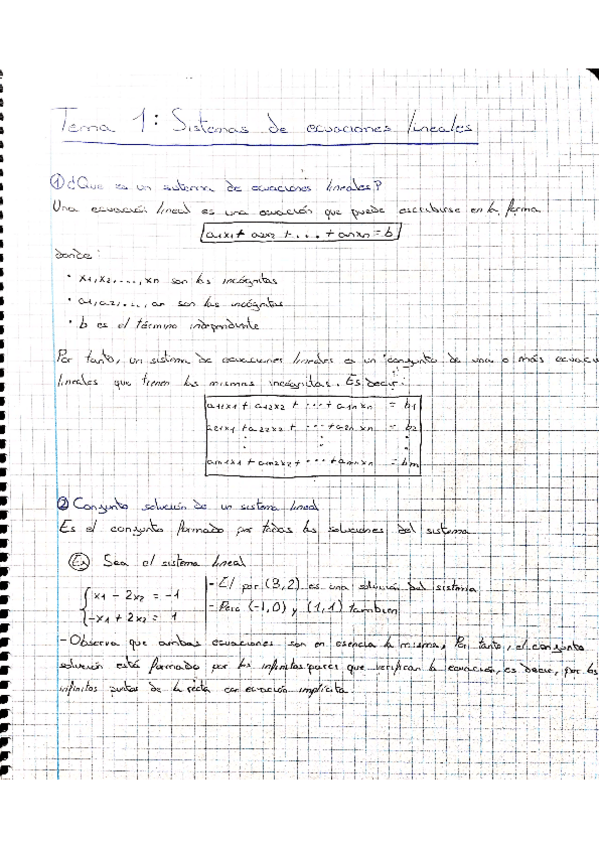 Tema 1: Sistemas de ecuaciones lineales
① ¿Que es un sistema de ecuaciones lineales?
Una ecuación lineal es una ecuación que puede escribirse en la forma
a1x1 + a2x2 + ... + anxn = b
donde:
· x1, x2, ..., xn son las incógnitas
· a1, a2, ..., an son las incógnitas
· b es el término independiente
Por tanto, un sistema de ecuaciones lineales es un conjunto de una o más ecuacio
lineales que tienen las mismas incógnitas. Es decir:
a11x1 + a12x2 + ... + a1nxn = b1
a21x1 + a22x2 + ... + a2nxn = b2
⋮ ⋮ ⋮
am1x1 + am2x2 + ... + amnxn = bm
② Conjunto solución de un sistema lineal
Es el conjunto formado por todas las soluciones del sistema
Ex Sea el sistema lineal
x1 - 2x2 = -1
-x1 + 2x2 = 1
- El par (3,2) es una solución del sistema
- Pero (-1,0) y (1,1) tambien
- Observa que ambas ecuaciones son en esencia la misma. Por tanto, el conjunto
solución está formado por los infinitos pares que verifican la ecuación, es decir, por los
infinitos puntos de la recta con ecuación implícita